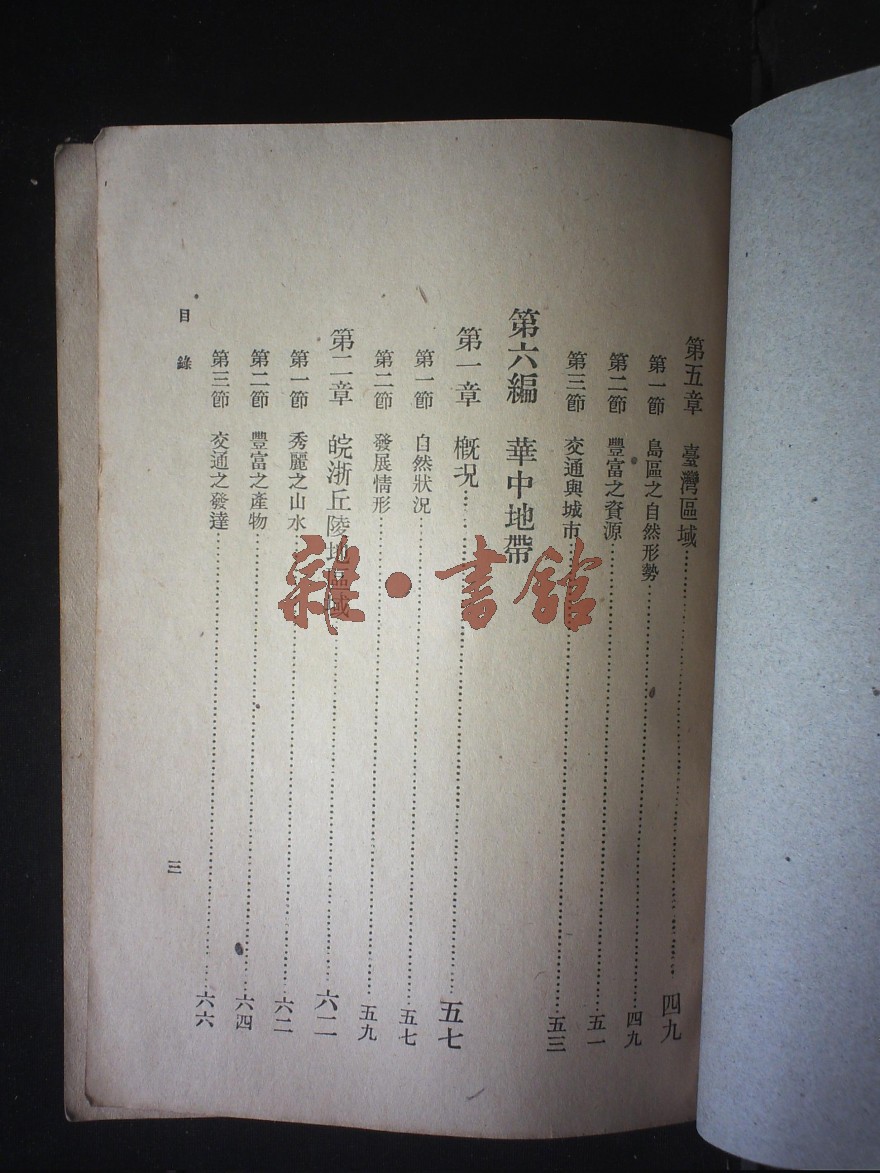 第五章　臺灣區域……四九
第一節　島區之自然形勢……四九
第二節　豐富之資源……五一
第三節　交通與城市……五三
第六編　華中地帶
第一章　概況……五七
第一節　自然狀況……五七
第二節　發展情形……五九
第二章　皖浙丘陵地區域……六二
第一節　秀麗之山水……六二
第二節　豐富之產物……六四
第三節　交通之發達……六六
目錄
三
雜·書館